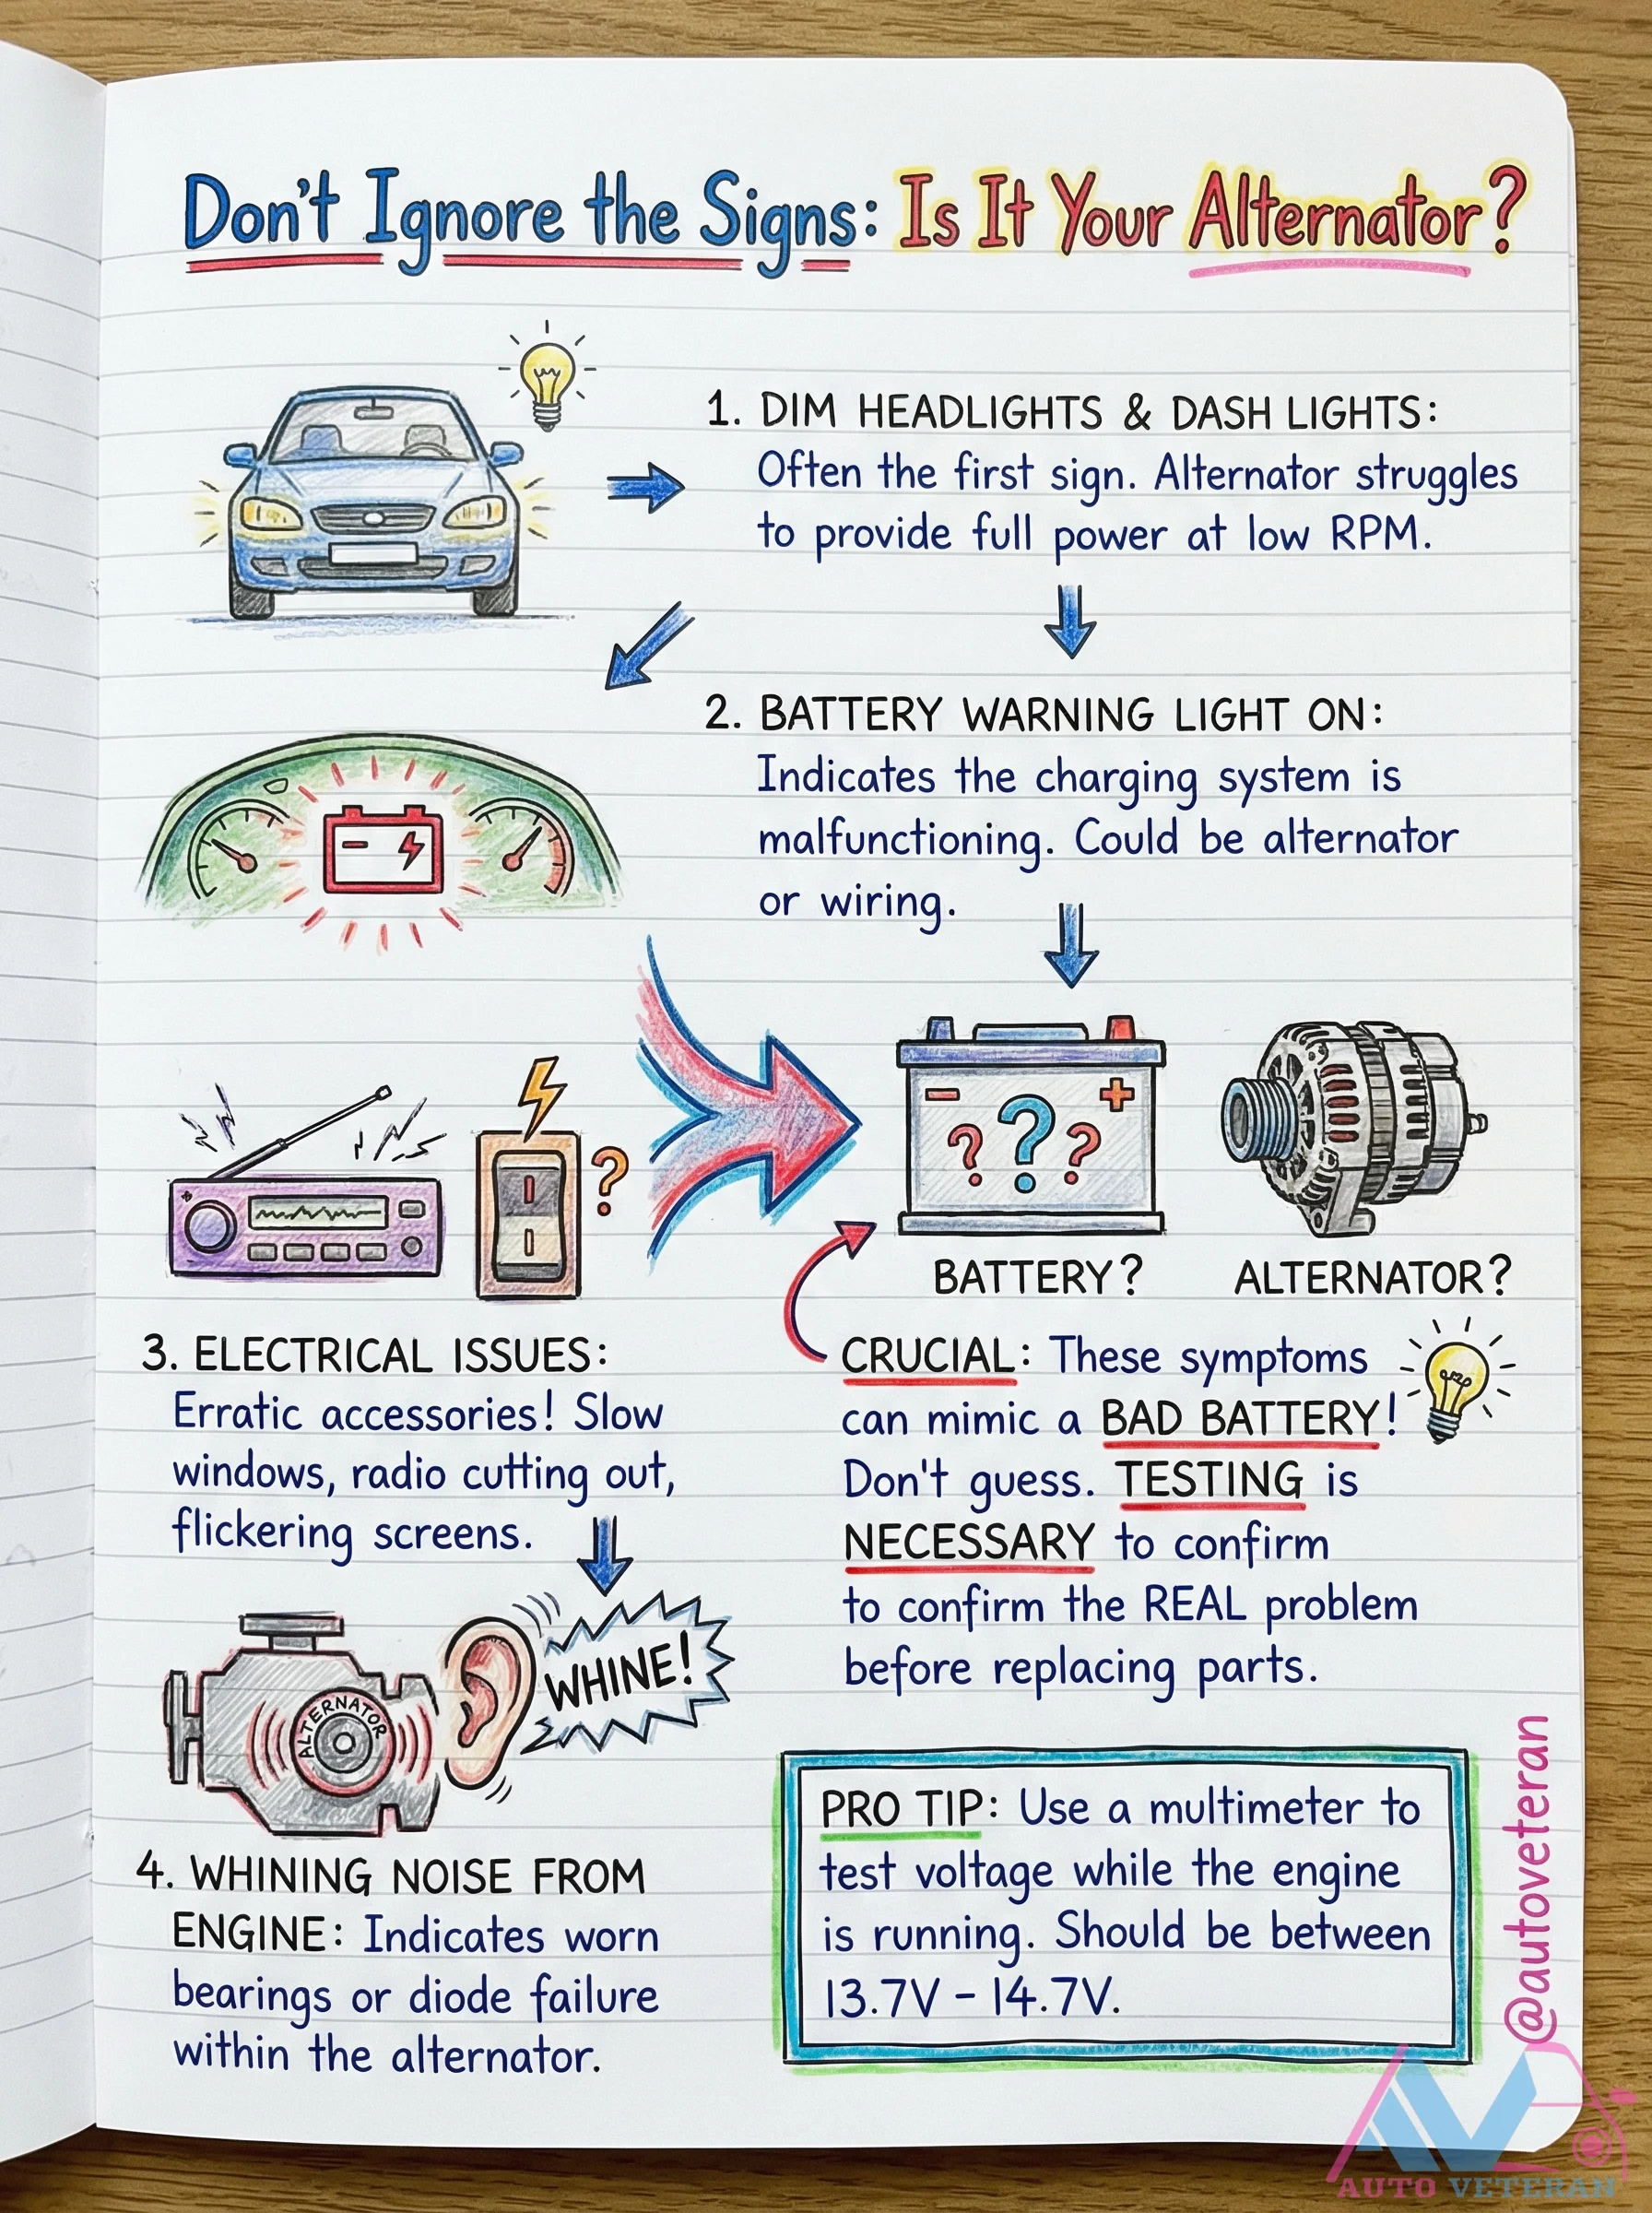 Don't Ignore the Signs: Is It Your Alternator?
1. DIM HEADLIGHTS & DASH LIGHTS:
Often the first sign. Alternator struggles
to provide full power at low RPM.
2. BATTERY WARNING LIGHT ON:
Indicates the charging system is
malfunctioning. Could be alternator
or wiring.
- +
? ? ?
?
BATTERY?
ALTERNATOR?
3. ELECTRICAL ISSUES:
Erratic accessories! Slow
windows, radio cutting out,
flickering screens.
CRUCIAL: These symptoms
can mimic a BAD BATTERY!
Don't guess. TESTING is
NECESSARY to confirm
to confirm the REAL problem
before replacing parts.
ALTERNATOR
WHINE!
4. WHINING NOISE FROM
ENGINE: Indicates worn
bearings or diode failure
within the alternator.
PRO TIP: Use a multimeter to
test voltage while the engine
is running. Should be between
13.7V – 14.7V.
@autoveteran
AUTO VETERAN